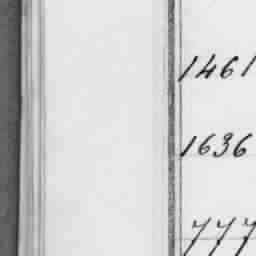 1461
1636
777